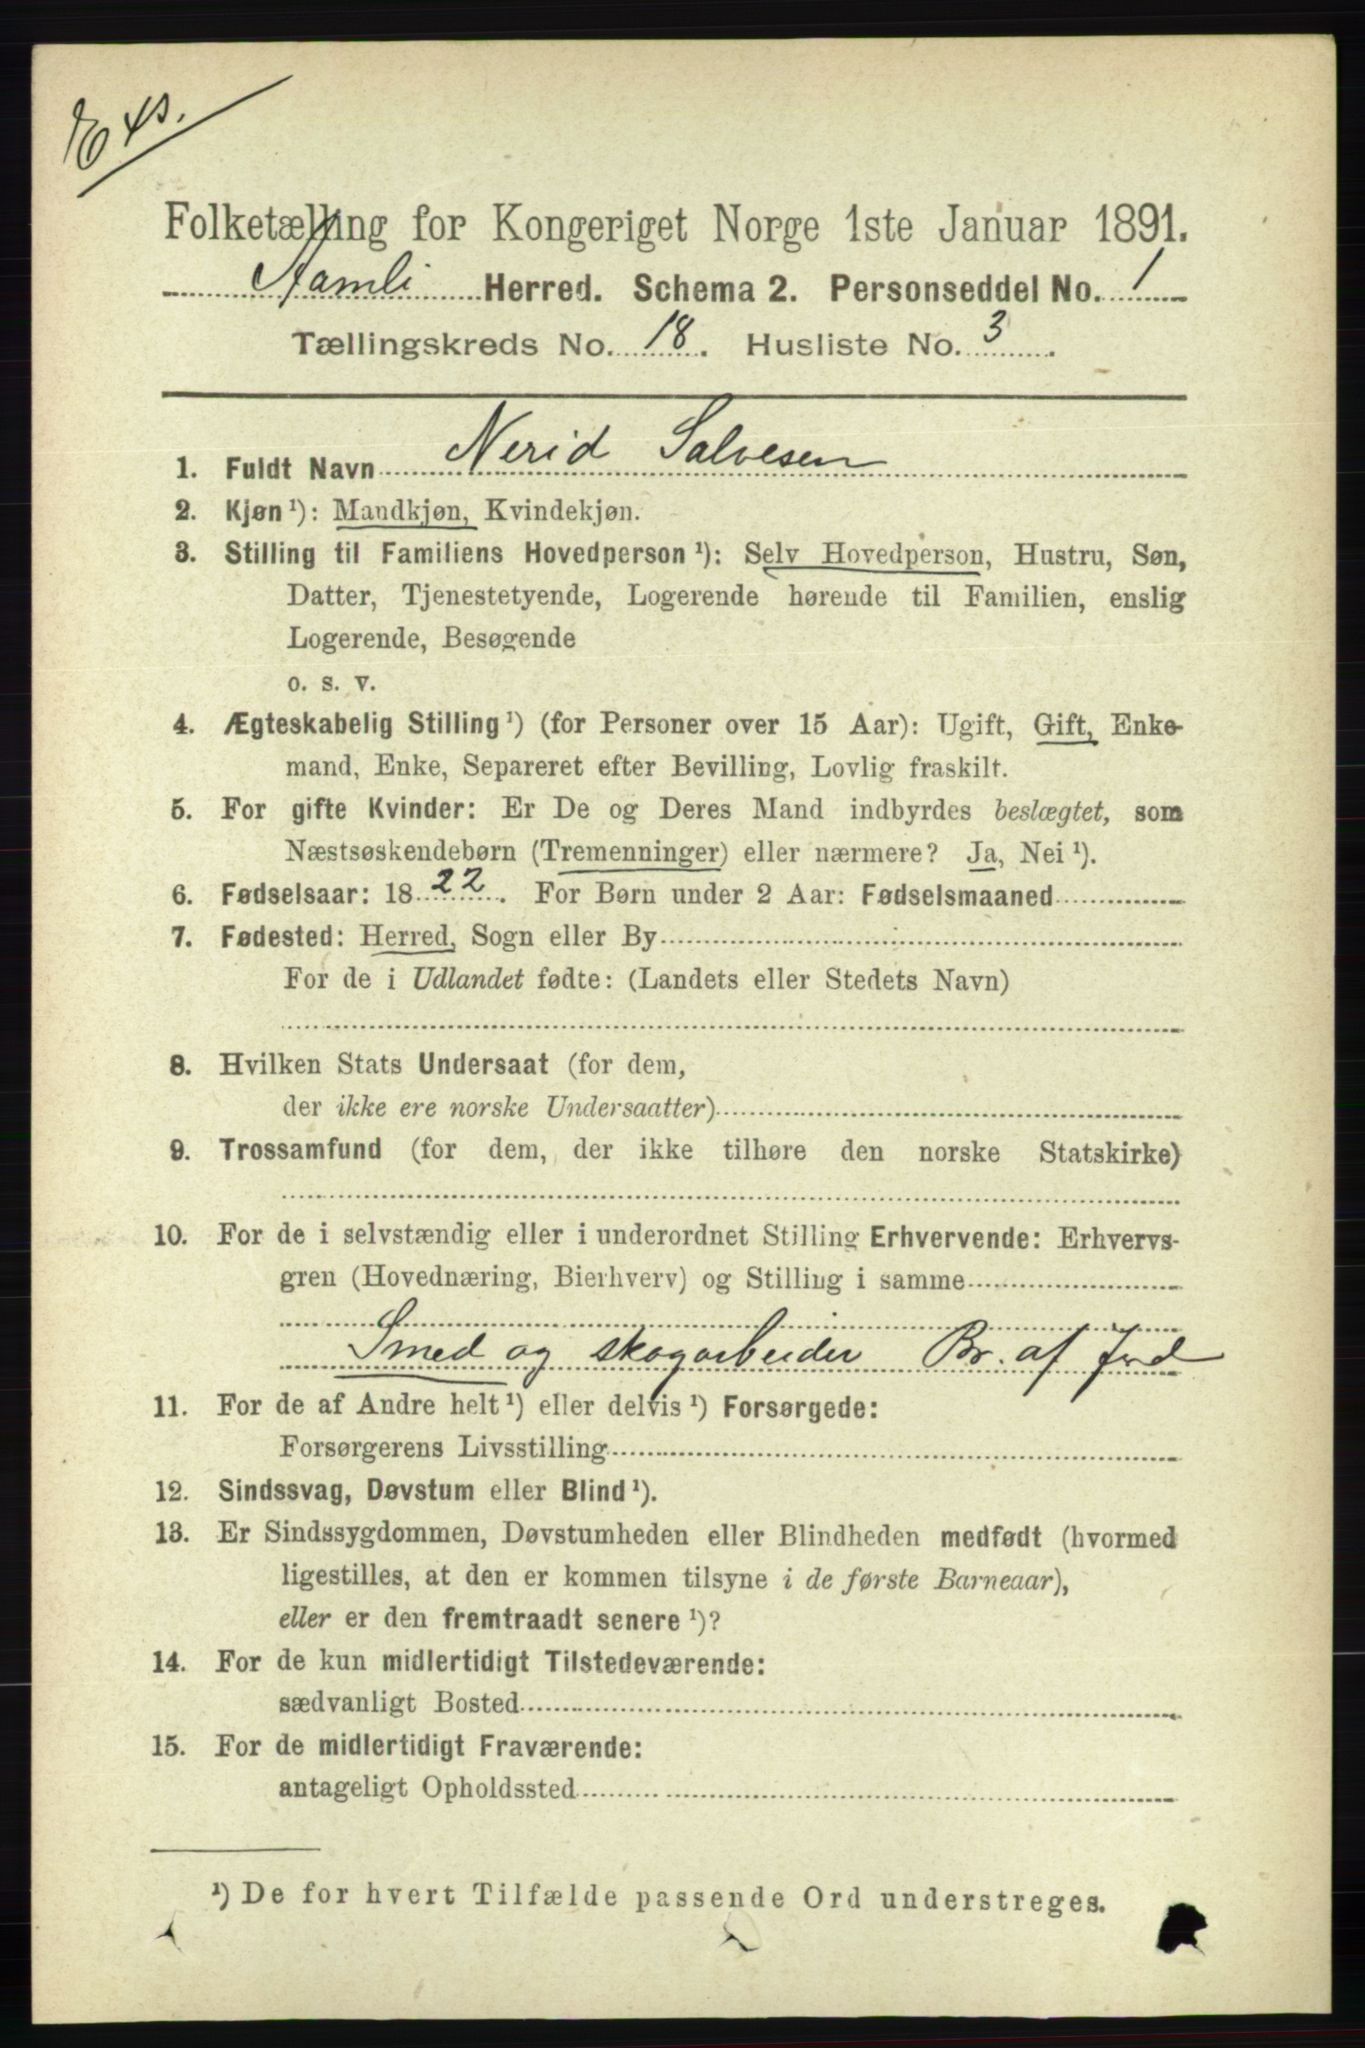 Exs.
Folketælling for Kongeriget Norge 1ste Januar 1891.
Aamli Herred. Schema 2. Personseddel No. 1
Tællingskreds No. 18. Husliste No. 3.
1. Fuldt Navn Nerid Salvesen
2. Kjøn ¹): Mandkjøn, Kvindekjøn.
3. Stilling til Familiens Hovedperson ¹): Selv Hovedperson, Hustru, Søn,
Datter, Tjenestetyende, Logerende hørende til Familien, enslig
Logerende, Besøgende
o. s. v.
4. Ægteskabelig Stilling ¹) (for Personer over 15 Aar): Ugift, Gift, Enke-
mand, Enke, Separeret efter Bevilling, Lovlig fraskilt.
5. For gifte Kvinder: Er De og Deres Mand indbyrdes beslægtet, som
Næstsøskendebørn (Tremenninger) eller nærmere? Ja, Nei ¹).
6. Fødselsaar: 1822. For Børn under 2 Aar: Fødselsmaaned
7. Fødested: Herred, Sogn eller By
For de i Udlandet fødte: (Landets eller Stedets Navn)
8. Hvilken Stats Undersaat (for dem,
der ikke ere norske Undersaatter)
9. Trossamfund (for dem, der ikke tilhøre den norske Statskirke)
10. For de i selvstændig eller i underordnet Stilling Erhvervende: Erhvervs-
gren (Hovednæring, Bierhverv) og Stilling i samme
Smed og skogarbeider Br. af Jord
11. For de af Andre helt ¹) eller delvis ¹) Forsørgede:
Forsørgerens Livsstilling
12. Sindssvag, Døvstum eller Blind ¹).
13. Er Sindssygdommen, Døvstumheden eller Blindheden medfødt (hvormed
ligestilles, at den er kommen tilsyne i de første Barneaar),
eller er den fremtraadt senere ¹)?
14. For de kun midlertidigt Tilstedeværende:
sædvanligt Bosted
15. For de midlertidigt Fraværende:
antageligt Opholdssted
¹) De for hvert Tilfælde passende Ord understreges.